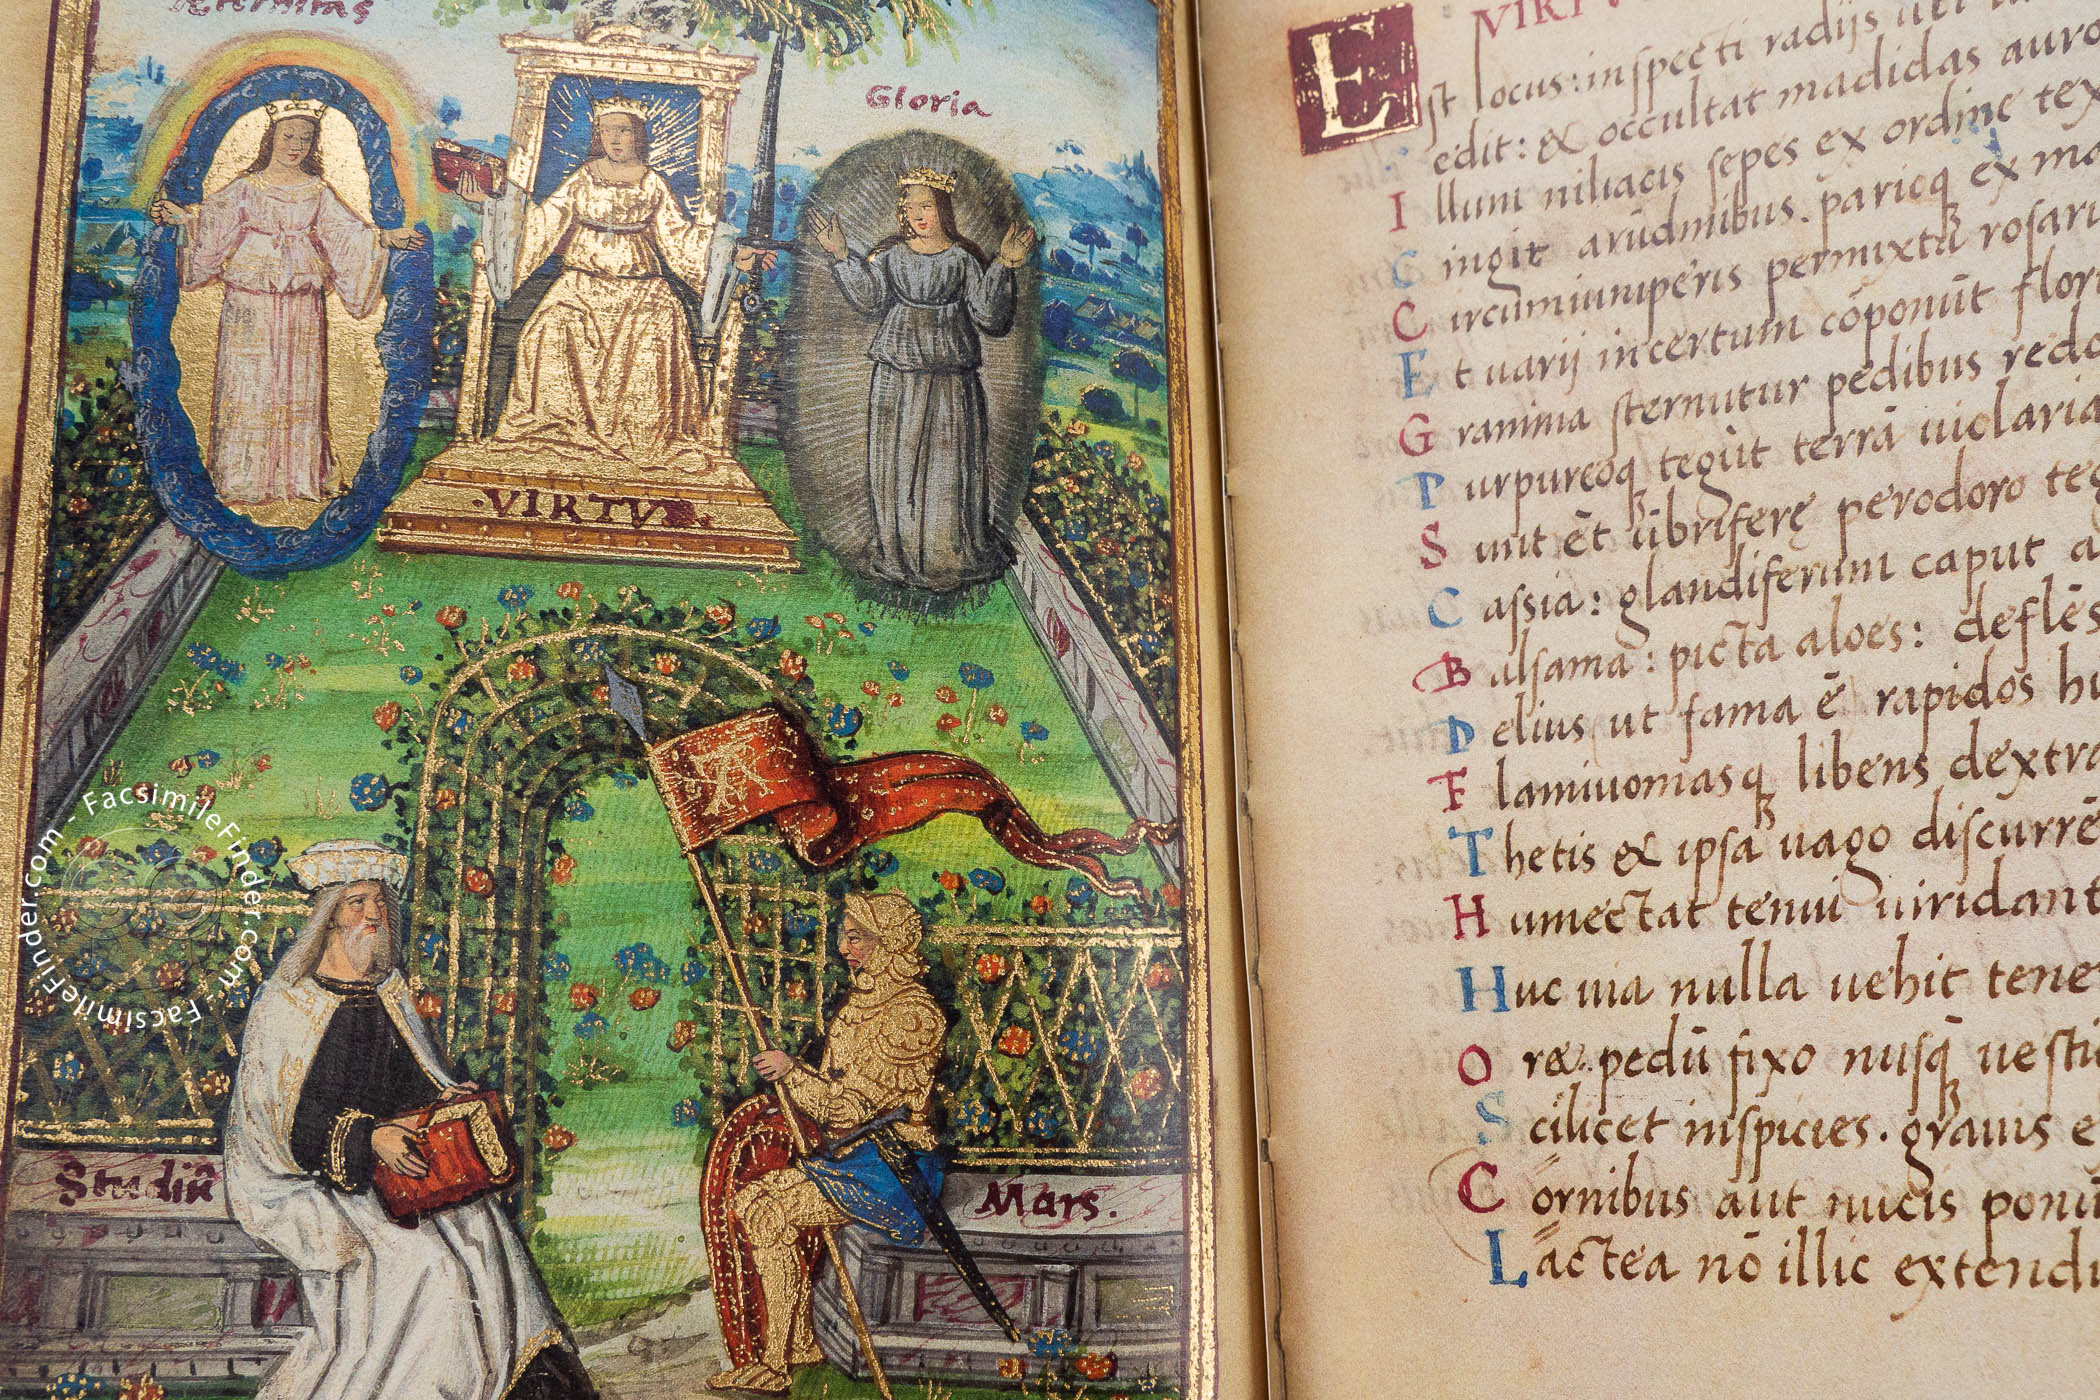 Aeternitas
Gloria
·VIRTVS·
Studiū
Mars.
FacsimileFinder.com - FacsimileFinder.com - FacsimileFinder.com
Est locus: inspecti radijs uti
edit: & occultat madidas auro
Illum niliacis sepes ex ordine
Cingit arūdinibus. parioq ex
Circumiuniperis permixta rosari
Et uarij incertum cōponūt flor
Gramina sternutur pedibus
Purpureoq tegūt terrā uiolaria
Sunt ēt ūbriferę perodoro
Cassia: glandiferum caput
Balsama: picta aloes: deflēs
Delius ut fama ē rapidos
Flamiuomasq libens dextra
Thetis & ipsa uago discurrē
Humectat tenui uiridant
Huc uia nulla uehit
Oræ. pedū fixo nusq̄
Scilicet inspicies. grauis e
Cornibus aut nucis ponū
Lactea nō illic extend